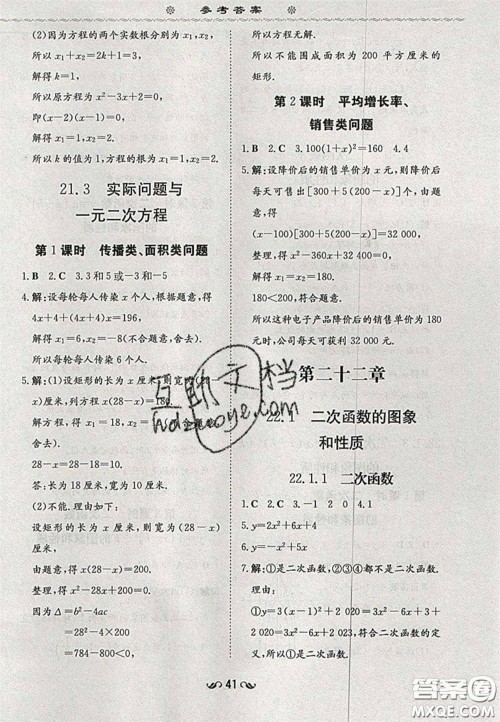 参考答案
(2)因为方程的两个实数根分别为x₁,x₂,
所以x₁+x₂=2k+1=3,
解得k=1.
所以原方程为x²-3x+2=0,
即(x-1)(x-2)=0.
解得x₁=1,x₂=2.
所以k的值为1,方程的根为x₁=1,x₂=2.
21.3 实际问题与
一元二次方程
第1课时 传播类、面积类问题
1.B 2.C 3.3和5或-3和-5
4.解:设每轮每人传染x个人,根据题意,得
4x+4+(4x+4)x=196,
解得x₁=6,x₂=-8(不合题意,舍去).
所以每轮每人传染6个人.
5.解:(1)设矩形的长为x厘米,则宽为(28-x)
厘米,列方程x(28-x)=180.
解方程,得x₁=18,x₂=10(不合题意,
舍去).
28-x=28-18=10.
答:长为18厘米,宽为10厘米.
(2)不能.理由如下:
设矩形的长为x厘米,则宽为(28-x)
厘米,
由题意,得x(28-x)=200.
整理,得x²-28x+200=0.
因为Δ=b²-4ac
=28²-4×200
=784-800<0,
所以方程无解.
所以不能围成面积为200平方厘米的
矩形.
第2课时 平均增长率、
销售类问题
1.B 2.C 3.100(1+x)²=160 4.4
5.解:设降价后的销售单价为x元,则降价后
每天可售出[300+5(200-x)]个.
依题意,得
(x-100)[300+5(200-x)]=32 000,
整理,得x²-360x+32 400=0.
解得x₁=x₂=180.
180<200,符合题意.
所以这种电子产品降价后的销售单价为180
元时,公司每天可获利32 000元.
第二十二章
22.1 二次函数的图象
和性质
22.1.1 二次函数
1.C 2.C 3.-1 2 0 4.1
5.y=2x²+6x+4
6.y=-x²+5x
7.解:①是二次函数,②③④都不是二次函数.
理由:
①y=(x-3)²+2 020=x²-6x+3²+
2 020=x²-6x+2 029,符合二次函数的定
义,所以①是二次函数.
互助文档
hdzuoye.com
41
答案圈
MXQE.COM